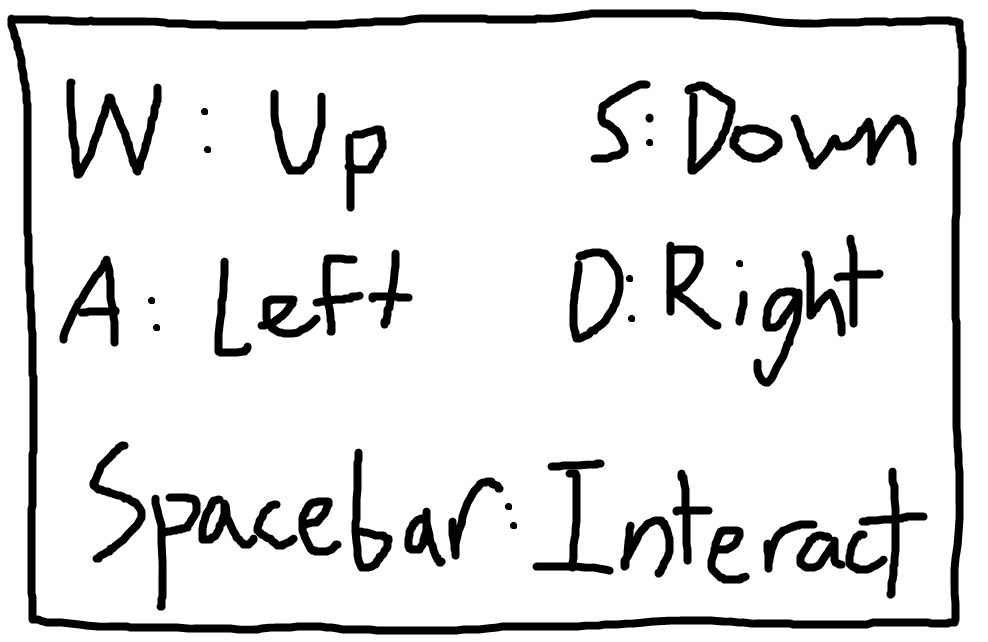 W: Up S: Down
A: Left D: Right
Spacebar: Interact